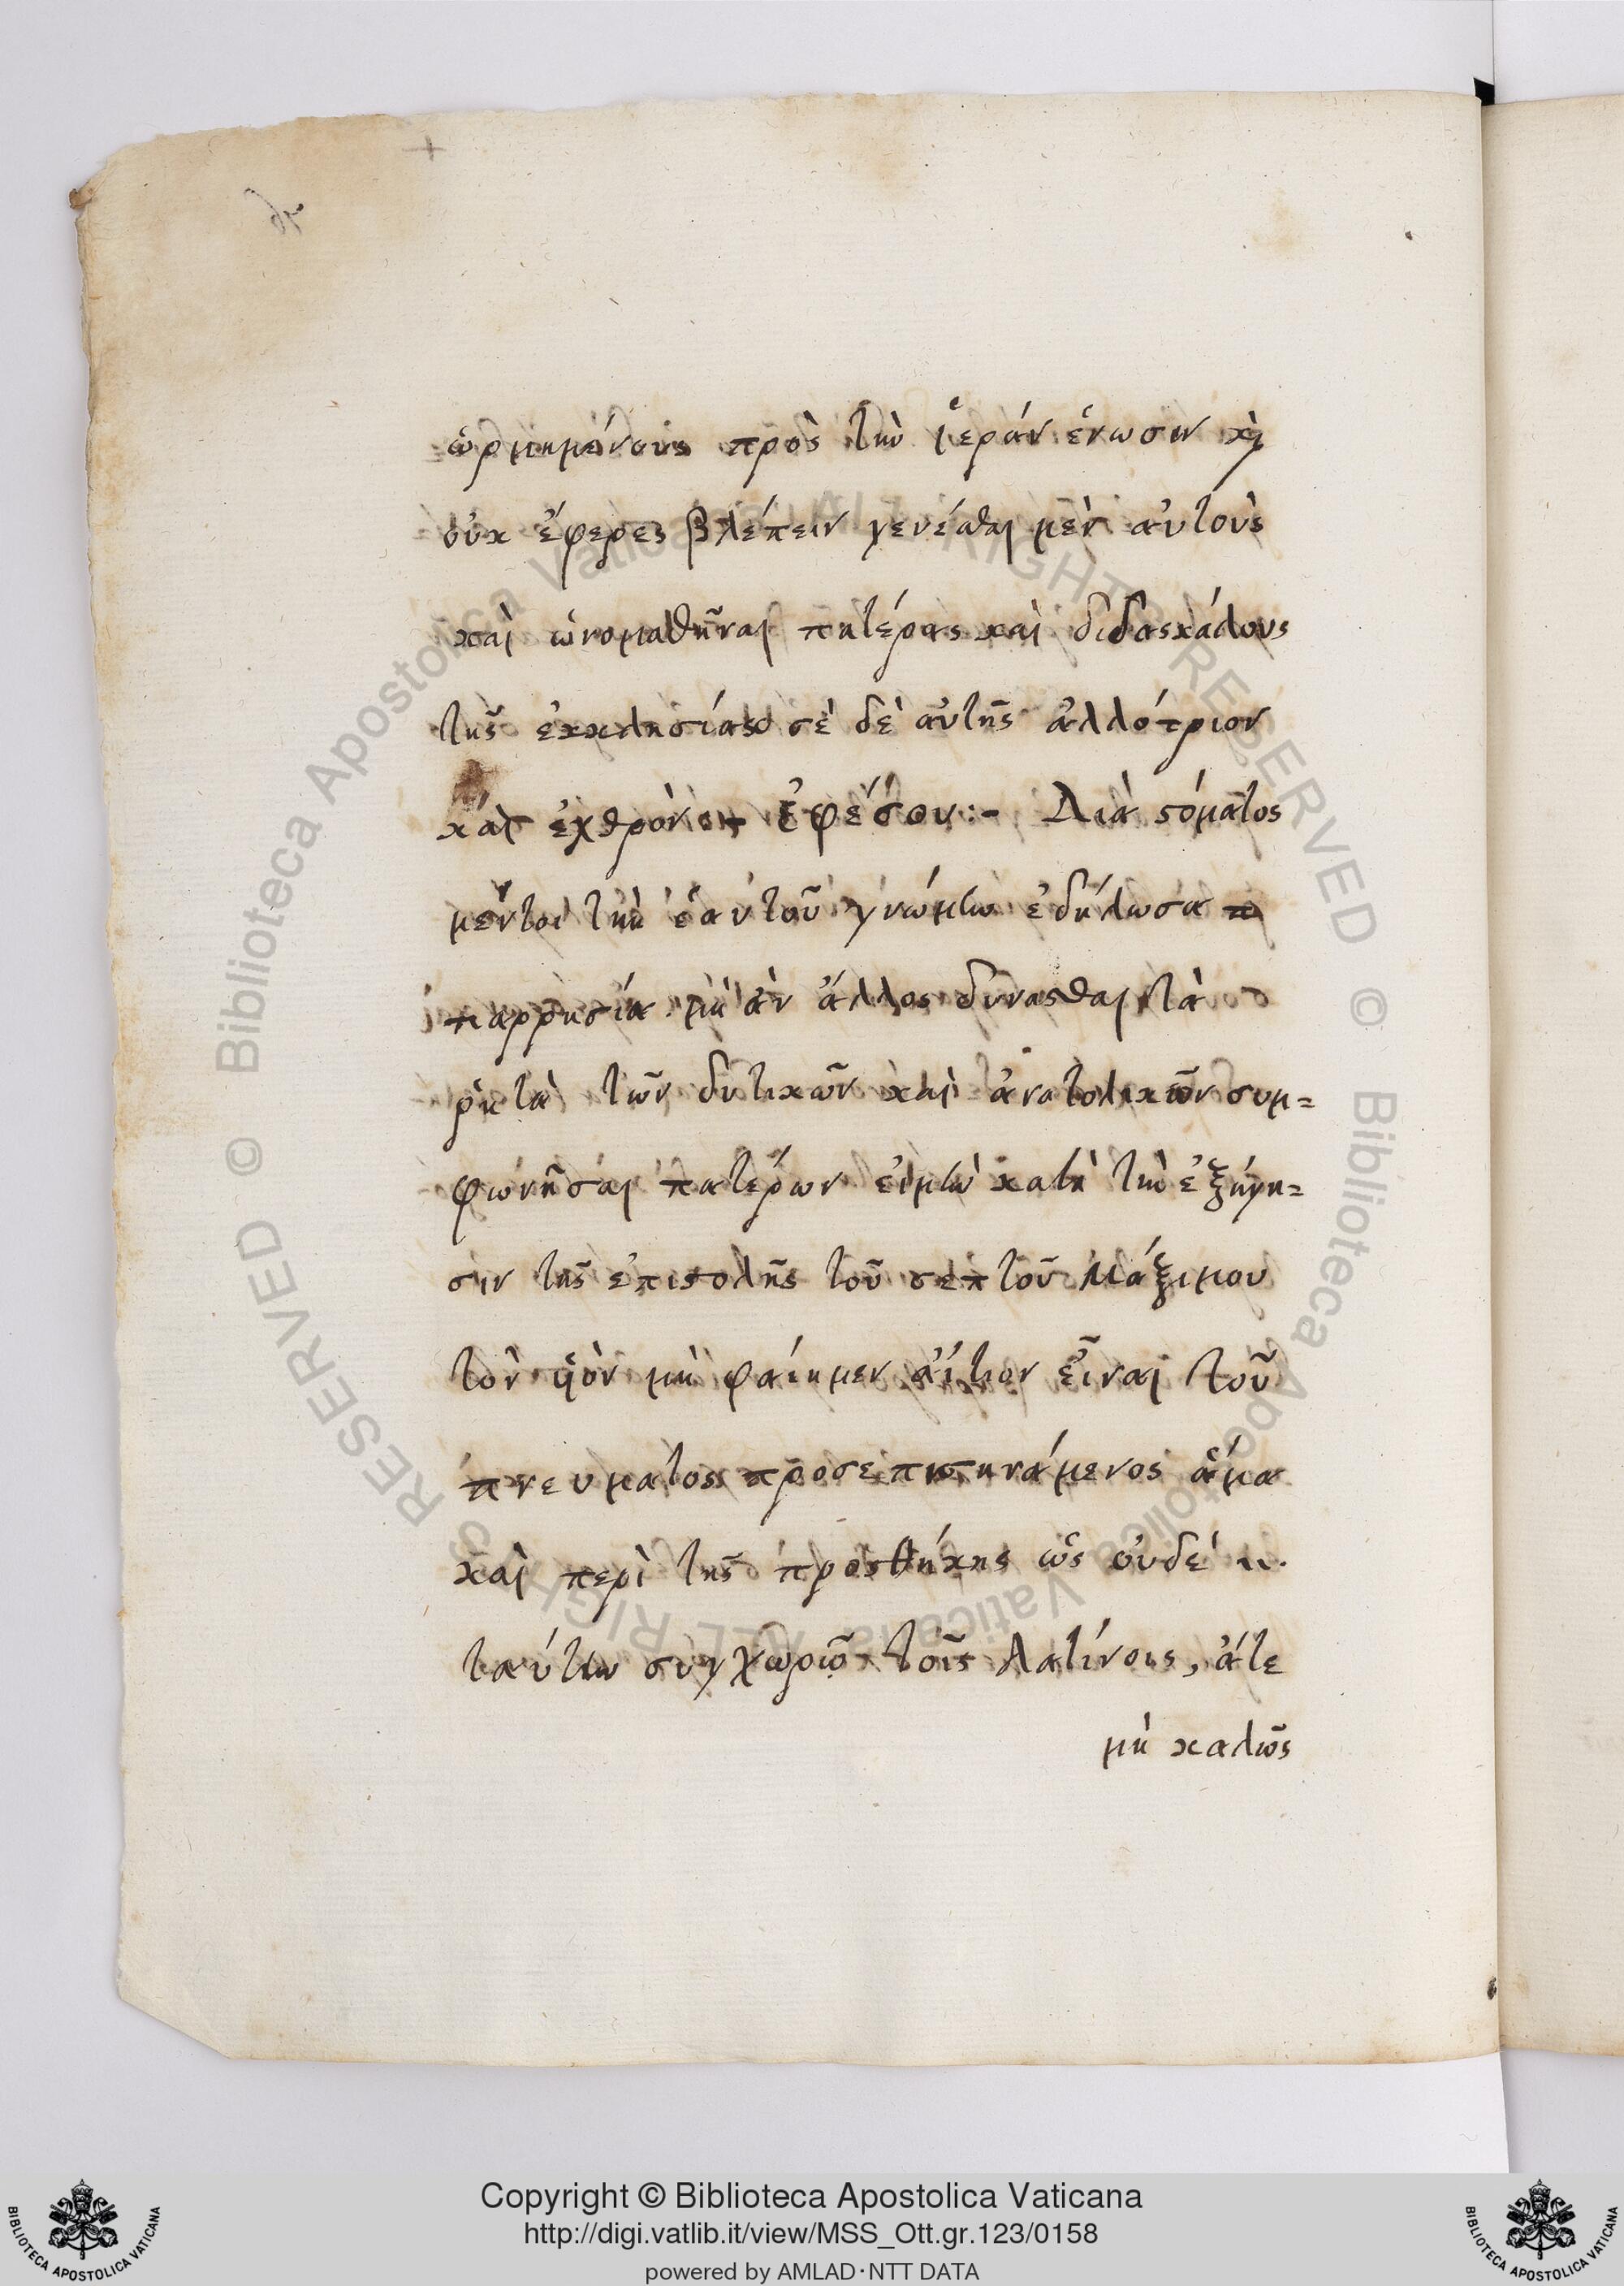 ὡρμημένους πρὸς τὴν ἱερὰν ἕνωσιν καὶ
οὐκ ἔφερες βλέπειν γενέσθαι μὲν αὐτοὺς
καὶ ὠνομασθῆναι πατέρας καὶ διδασκάλους
τῆς ἐκκλησίας σὲ δὲ αὐτῆς ἀλλότριον
καὶ ἐχθρόν. Ἐφέσου:- Διὰ στόματος
μέντοι τὴν ἑαυτοῦ γνώμην ἐδήλωσα
παρρησίᾳ μὴ ἂν ἄλλος δύνασθαι τὰ
ῥητὰ τῶν δυτικῶν καὶ ἀνατολικῶν συμ=
φωνῆσαι πατέρων εἰ μὴ κατὰ τὴν ἐξήγη=
σιν τῆς ἐπιστολῆς τοῦ σεπτοῦ Μάξιμου
τὸν ὑὸν μὴ φαίημεν αἴτιον εἶναι τοῦ
πνεύματος προσεπιστηνάμενος ἅμα
καὶ περὶ τῆς προσθήκης ὡς οὐδὲ
ταύτην συγχωρῶ τοῖς Λατίνοις, ἅτε
μὴ καλῶς
Copyright © Biblioteca Apostolica Vaticana
http://digi.vatlib.it/view/MSS_Ott.gr.123/0158
powered by AMLAD·NTT DATA